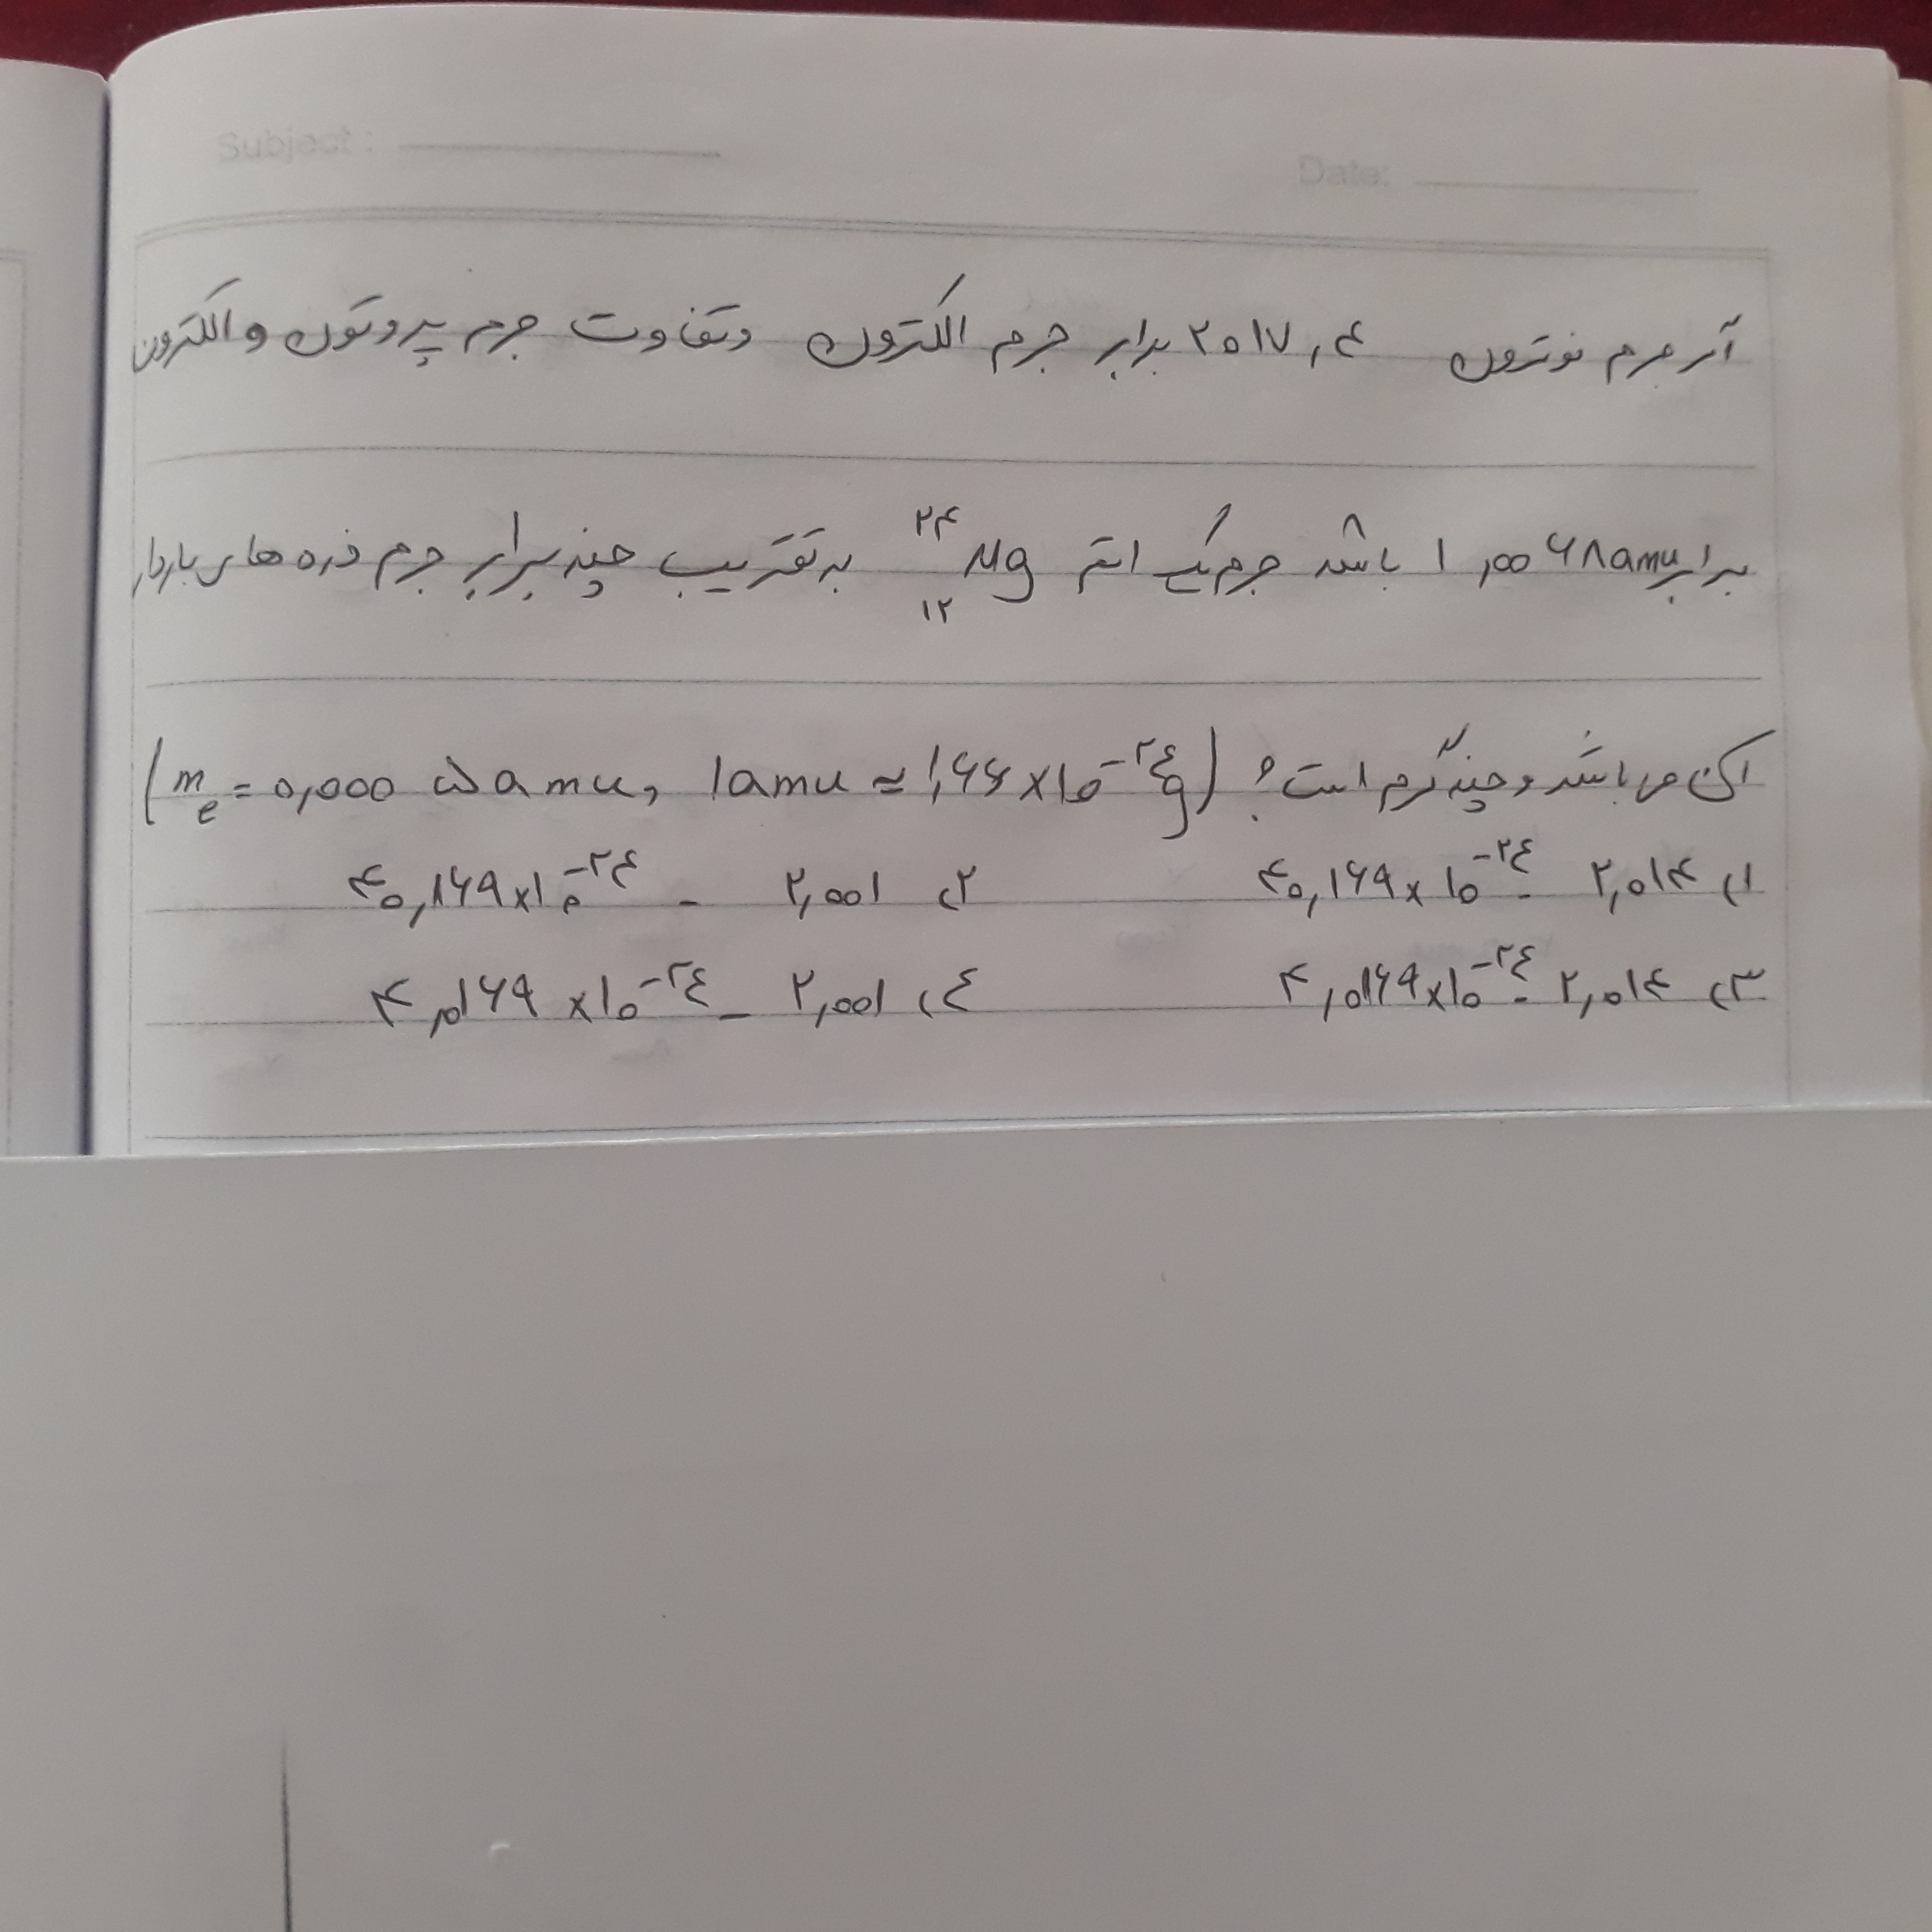 Subject : Date:
اگر جرم نوترون ۲۰۱۷٫۴ برابر جرم الکترون و تفاوت جرم پروتون و الکترون
برابر ۱٫۰۰۶۸amu باشد جرم یک اتم ²⁴₁₂Mg به تقریب چند برابر جرم ذره های باردار
آن می باشد و چند گرم است؟ (mₑ = ۰٫۰۰۰۵amu, ۱amu ≈ ۱٫۶۶×۱۰⁻²⁴g)
۱) ۲٫۰۱۴ - ۴۰٫۱۶۹×۱۰⁻²⁴ ۲) ۲٫۰۰۱ - ۴۰٫۱۶۹×۱۰⁻²⁴
۳) ۲٫۰۱۴ - ۴٫۰۱۶۹×۱۰⁻²⁴ ۴) ۲٫۰۰۱ - ۴٫۰۱۶۹×۱۰⁻²⁴